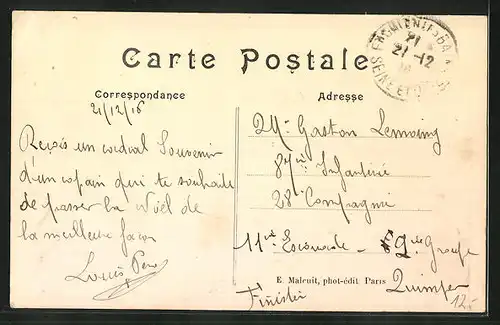 Carte Postale
21
21-12
SEINE ET
Correspondance
Adresse
21/12/16
Reçois un cordial Souvenir
d'un copain qui te souhaite
de passer la Noël de
la meilleur façon
Louis
Mr Gaston Lemoing
87me Infanterie
28e Compagnie
11me Escouade - 9me Groupe
Quimper
Finister
E. Malcuit, phot-édit. Paris
12.-